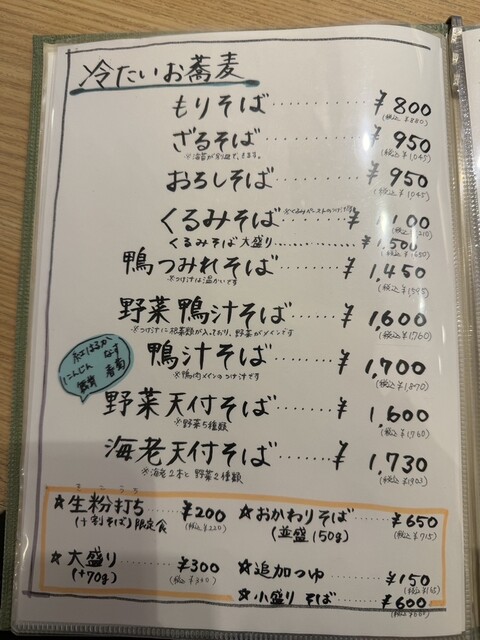 冷たいお蕎麦
もりそば………… ¥800
(税込¥880)
ざるそば………… ¥950
※海苔が別皿で、きます。 (税込¥1,045)
おろしそば………… ¥950
(税込¥1,045)
くるみそば ※くるみペーストのつけ汁 ¥1,100
(税込¥1,210)
くるみそば 大盛り………… ¥1,500
(税込¥1,650)
鴨つみれそば………… ¥1,450
※つけ汁は温かいです (税込¥1,595)
野菜鴨汁そば………… ¥1,600
※つけ汁に根菜類が入っており、野菜がメインです (税込¥1,760)
鴨汁そば………… ¥1,700
※鴨肉メインのつけ汁です (税込¥1,870)
紅はるか なす
にんじん 春菊
舞茸
野菜天付そば………… ¥1,600
※野菜5種類 (税込¥1,760)
海老天付そば………… ¥1,730
※海老2本と野菜2種類 (税込¥1,903)
きこうち
☆生粉打ち………… ¥200
(十割そば)限定食 (税込¥220)
☆大盛り………… ¥300
(+70g) (税込¥330)
☆おかわりそば………… ¥650
(並盛150g) (税込¥715)
☆追加つゆ………… ¥150
(税込¥165)
☆小盛りそば………… ¥600
(税込¥660)